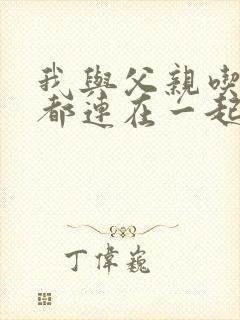 我與父親喫
都連在一起
丁偉巍